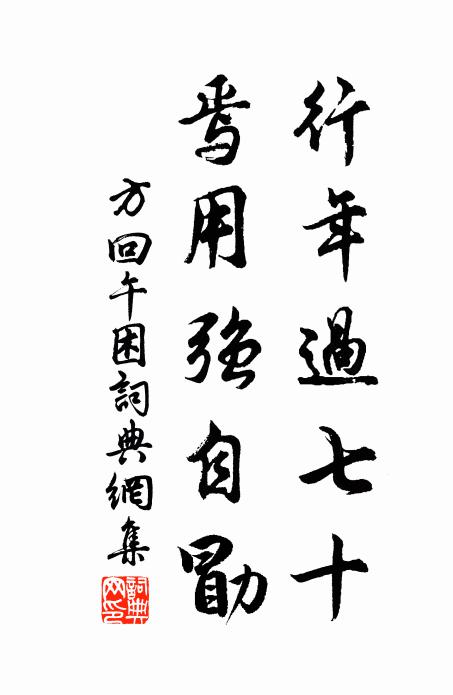 行年過七十
焉用強自勖
方回午困詞典網集
詞典網印